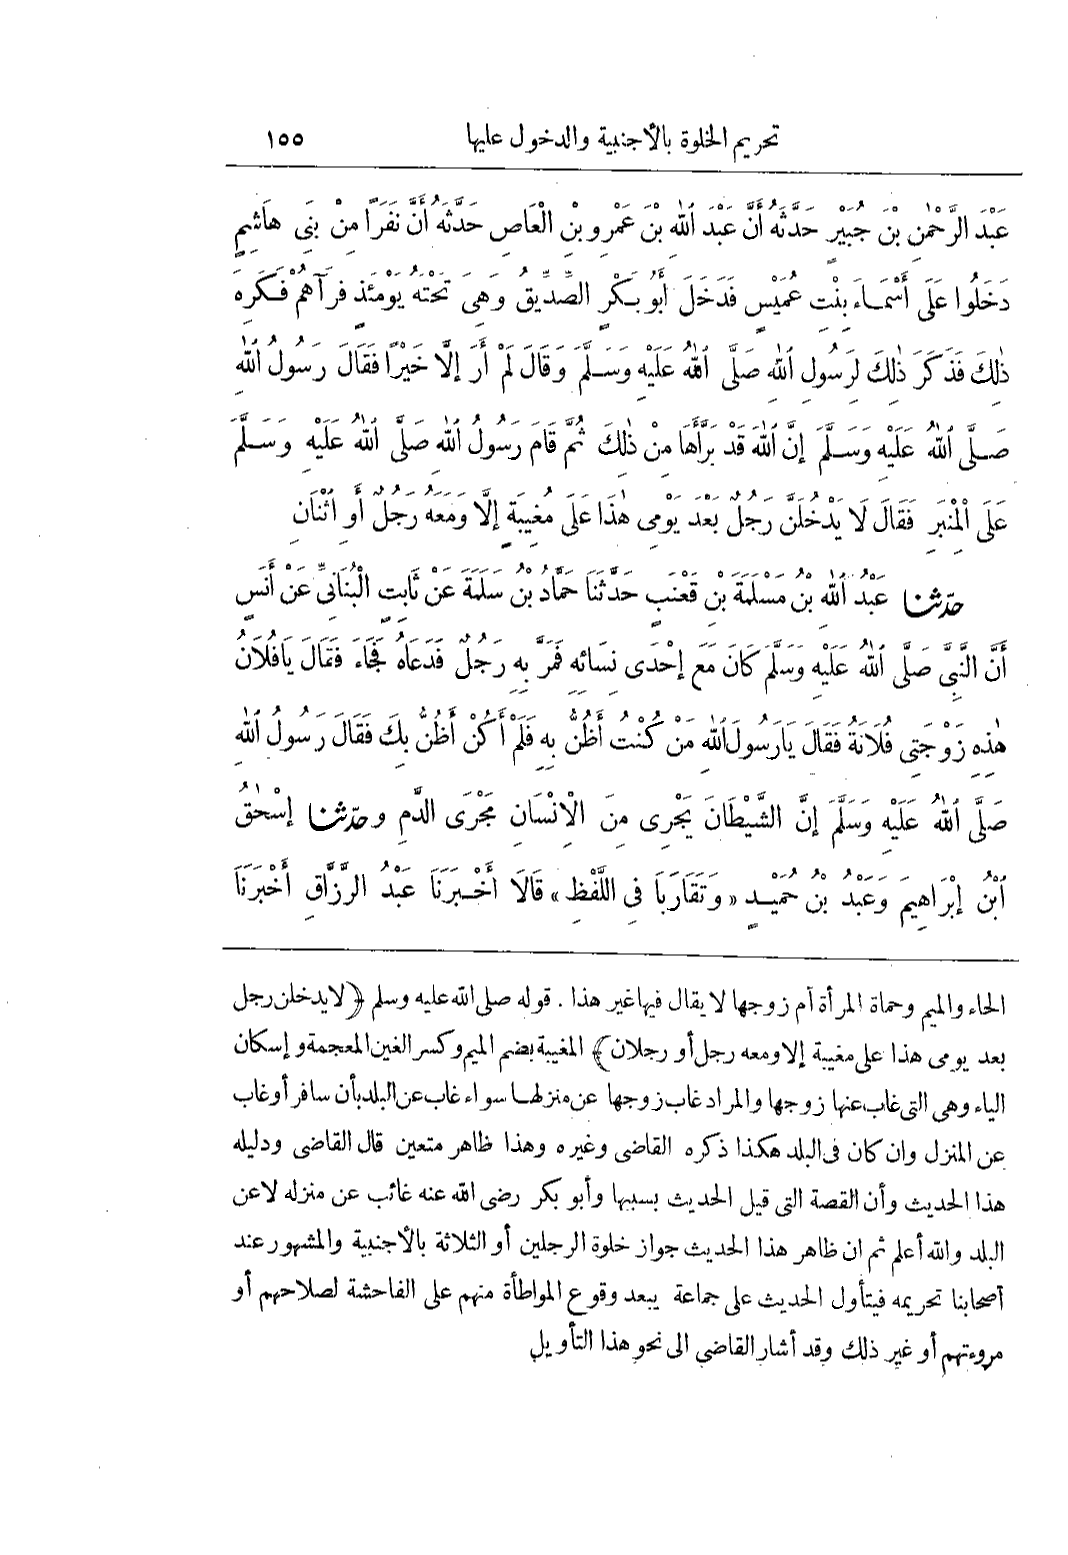 تحريم الخلوة بالأجنبية والدخول عليها ١٥٥
عَبْدَ الرَّحْمٰنِ بْنَ جُبَيْرٍ حَدَّثَهُ أَنَّ عَبْدَ اللهِ بْنَ عَمْرِو بْنِ الْعَاصِ حَدَّثَهُ أَنَّ نَفَرًا مِنْ بَنِى هَاشِمٍ
دَخَلُوا عَلَى أَسْمَاءَ بِنْتِ عُمَيْسٍ فَدَخَلَ أَبُو بَكْرٍ الصِّدِّيقُ وَهِىَ تَحْتَهُ يَوْمَئِذٍ فَرَآهُمْ فَكَرِهَ
ذٰلِكَ فَذَكَرَ ذٰلِكَ لِرَسُولِ اللهِ صَلَّى اللهُ عَلَيْهِ وَسَلَّمَ وَقَالَ لَمْ أَرَ إِلَّا خَيْرًا فَقَالَ رَسُولُ اللهِ
صَلَّى اللهُ عَلَيْهِ وَسَلَّمَ إِنَّ اللهَ قَدْ بَرَّأَهَا مِنْ ذٰلِكَ ثُمَّ قَامَ رَسُولُ اللهِ صَلَّى اللهُ عَلَيْهِ وَسَلَّمَ
عَلَى الْمِنْبَرِ فَقَالَ لَا يَدْخُلَنَّ رَجُلٌ بَعْدَ يَوْمِى هٰذَا عَلَى مُغِيبَةٍ إِلَّا وَمَعَهُ رَجُلٌ أَوِ اثْنَانِ
حدّثنا عَبْدُ اللهِ بْنُ مَسْلَمَةَ بْنِ قَعْنَبٍ حَدَّثَنَا حَمَّادُ بْنُ سَلَمَةَ عَنْ ثَابِتٍ الْبُنَانِىِّ عَنْ أَنَسٍ
أَنَّ النَّبِىَّ صَلَّى اللهُ عَلَيْهِ وَسَلَّمَ كَانَ مَعَ إِحْدَى نِسَائِهِ فَمَرَّ بِهِ رَجُلٌ فَدَعَاهُ فَجَاءَ فَقَالَ يَافُلَانُ
هٰذِهِ زَوْجَتِى فُلَانَةُ فَقَالَ يَارَسُولَ اللهِ مَنْ كُنْتُ أَظُنُّ بِهِ فَلَمْ أَكُنْ أَظُنُّ بِكَ فَقَالَ رَسُولُ اللهِ
صَلَّى اللهُ عَلَيْهِ وَسَلَّمَ إِنَّ الشَّيْطَانَ يَجْرِى مِنَ الْإِنْسَانِ مَجْرَى الدَّمِ وحدّثنا إِسْحٰقُ
ابْنُ إِبْرَاهِيمَ وَعَبْدُ بْنُ حُمَيْدٍ «وَتَقَارَبَا فِى اللَّفْظِ» قَالَا أَخْبَرَنَا عَبْدُ الرَّزَّاقِ أَخْبَرَنَا
الحاء والميم وحماة المرأة أم زوجها لا يقال فيها غير هذا . قوله صلى الله عليه وسلم ﴿لا يدخلن رجل
بعد يومى هذا على مغيبة إلا ومعه رجل أو رجلان﴾ المغيبة بضم الميم وكسر الغين المعجمة وإسكان
الياء وهى التى غاب عنها زوجها والمراد غاب زوجها عن منزلها سواء غاب عن البلد بأن سافر أو غاب
عن المنزل وان كان فى البلد هكذا ذكره القاضى وغيره وهذا ظاهر متعين قال القاضى ودليله
هذا الحديث وأن القصة التى قيل الحديث بسببها وأبو بكر رضى الله عنه غائب عن منزله لا عن
البلد والله أعلم ثم ان ظاهر هذا الحديث جواز خلوة الرجلين أو الثلاثة بالأجنبية والمشهور عند
أصحابنا تحريمه فيتأول الحديث على جماعة يبعد وقوع المواطأة منهم على الفاحشة لصلاحهم أو
مروءتهم أو غير ذلك وقد أشار القاضى الى نحو هذا التأويل